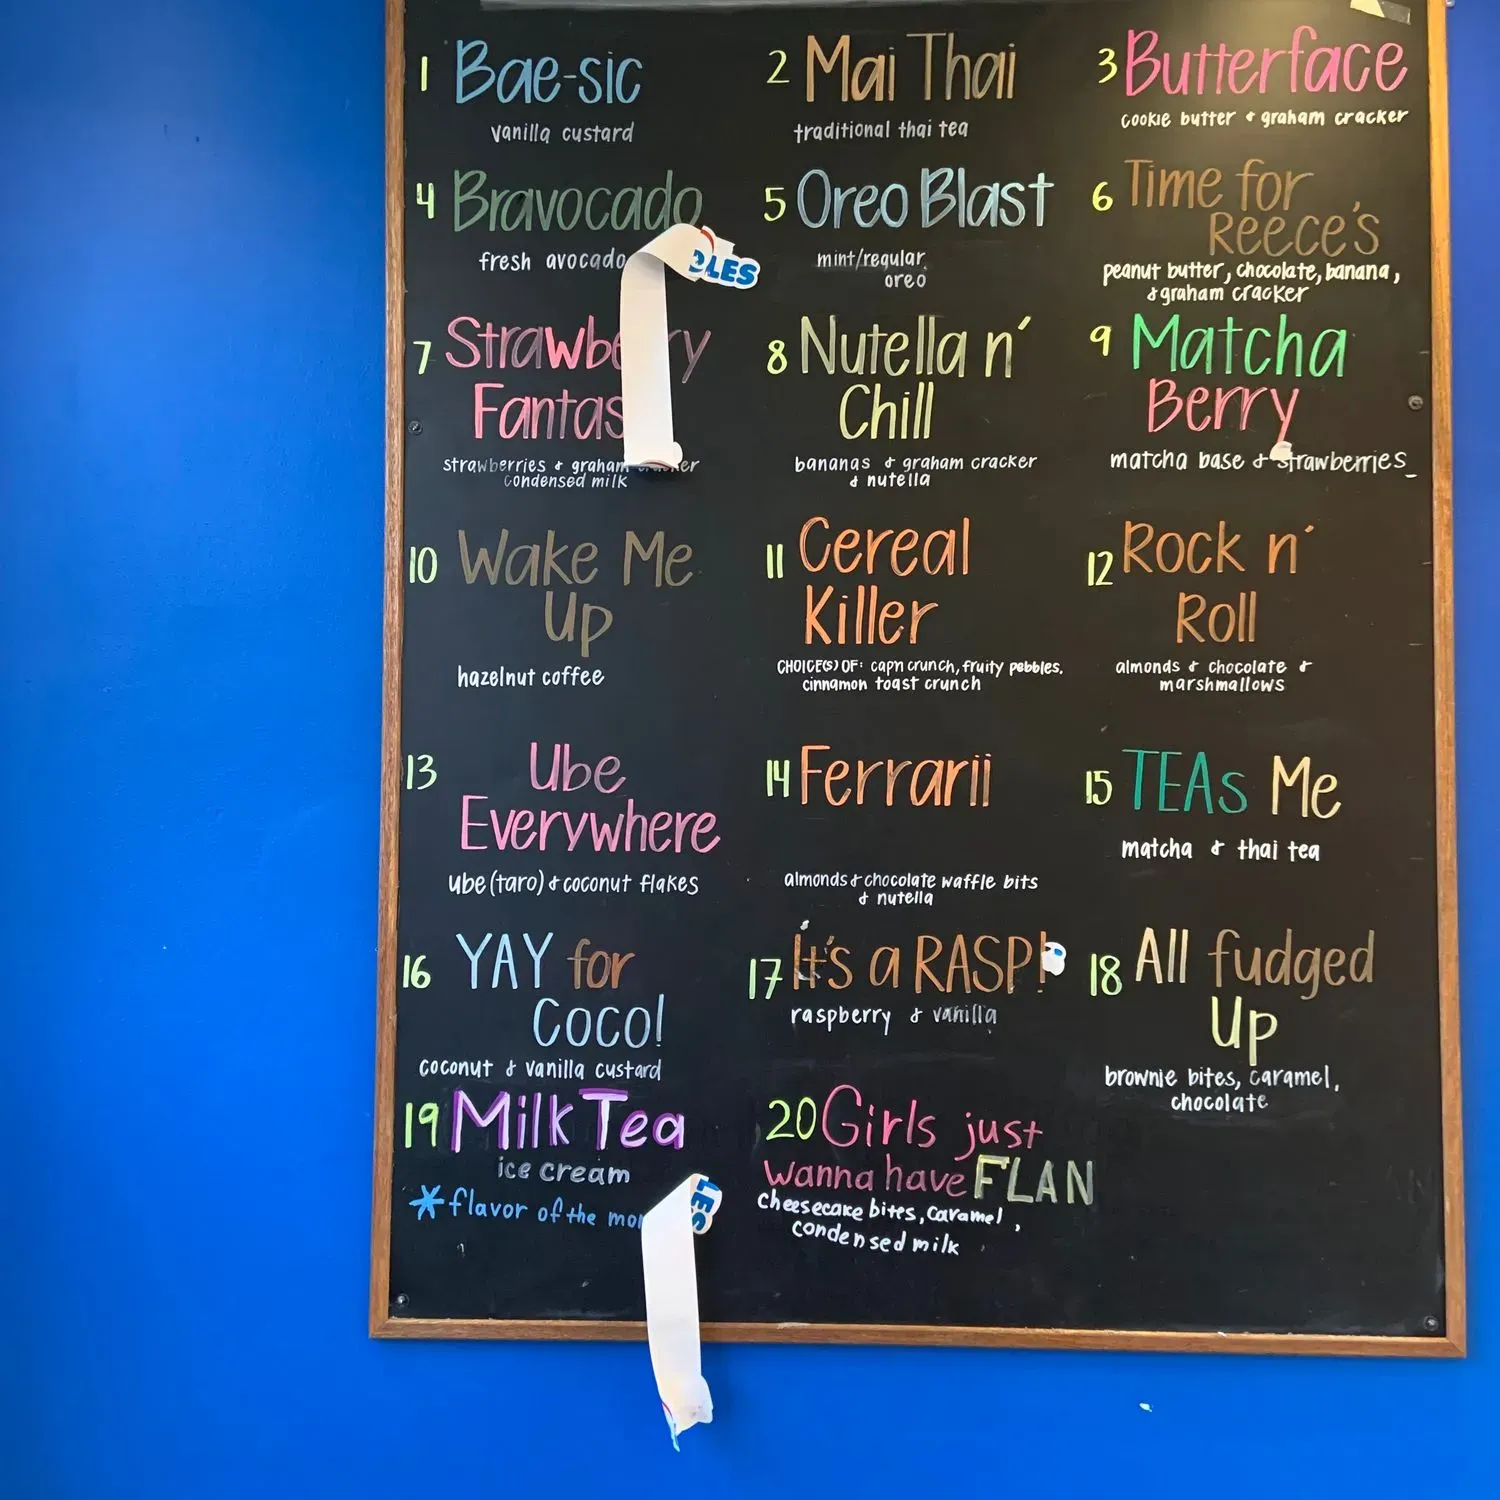 1 Bae-sic
vanilla custard
2 Mai Thai
traditional thai tea
3 Butterface
cookie butter & graham cracker
4 Bravocado
fresh avocado
LES
5 Oreo Blast
mint/regular
oreo
6 Time for
REECE'S
peanut butter, chocolate, banana,
& graham cracker
7
Fantas
strawberries & graham
condensed milk
8 Nutella n'
Chill
bananas & graham cracker
& nutella
9 Matcha
Berry
matcha base & strawberries
10 Wake Me
Up
hazelnut coffee
11 Cereal
Killer
CHOICE(S) OF: capn crunch, fruity pebbles,
cinnamon toast crunch
12 Rock n'
Roll
almonds & chocolate &
marshmallows
13 Ube
Everywhere
ube (taro) & coconut flakes
14 Ferrarii
almonds & chocolate waffle bits
& nutella
15 TEAs Me
matcha & thai tea
16 YAY for
COCO!
coconut & vanilla custard
17 It's a RASP!
raspberry & vanilla
18 All fudged
Up
brownie bites, caramel,
chocolate
19 Milk Tea
ice cream
*flavor of the
LES
20 Girls just
wanna have FLAN
cheesecake bites, caramel,
condensed milk